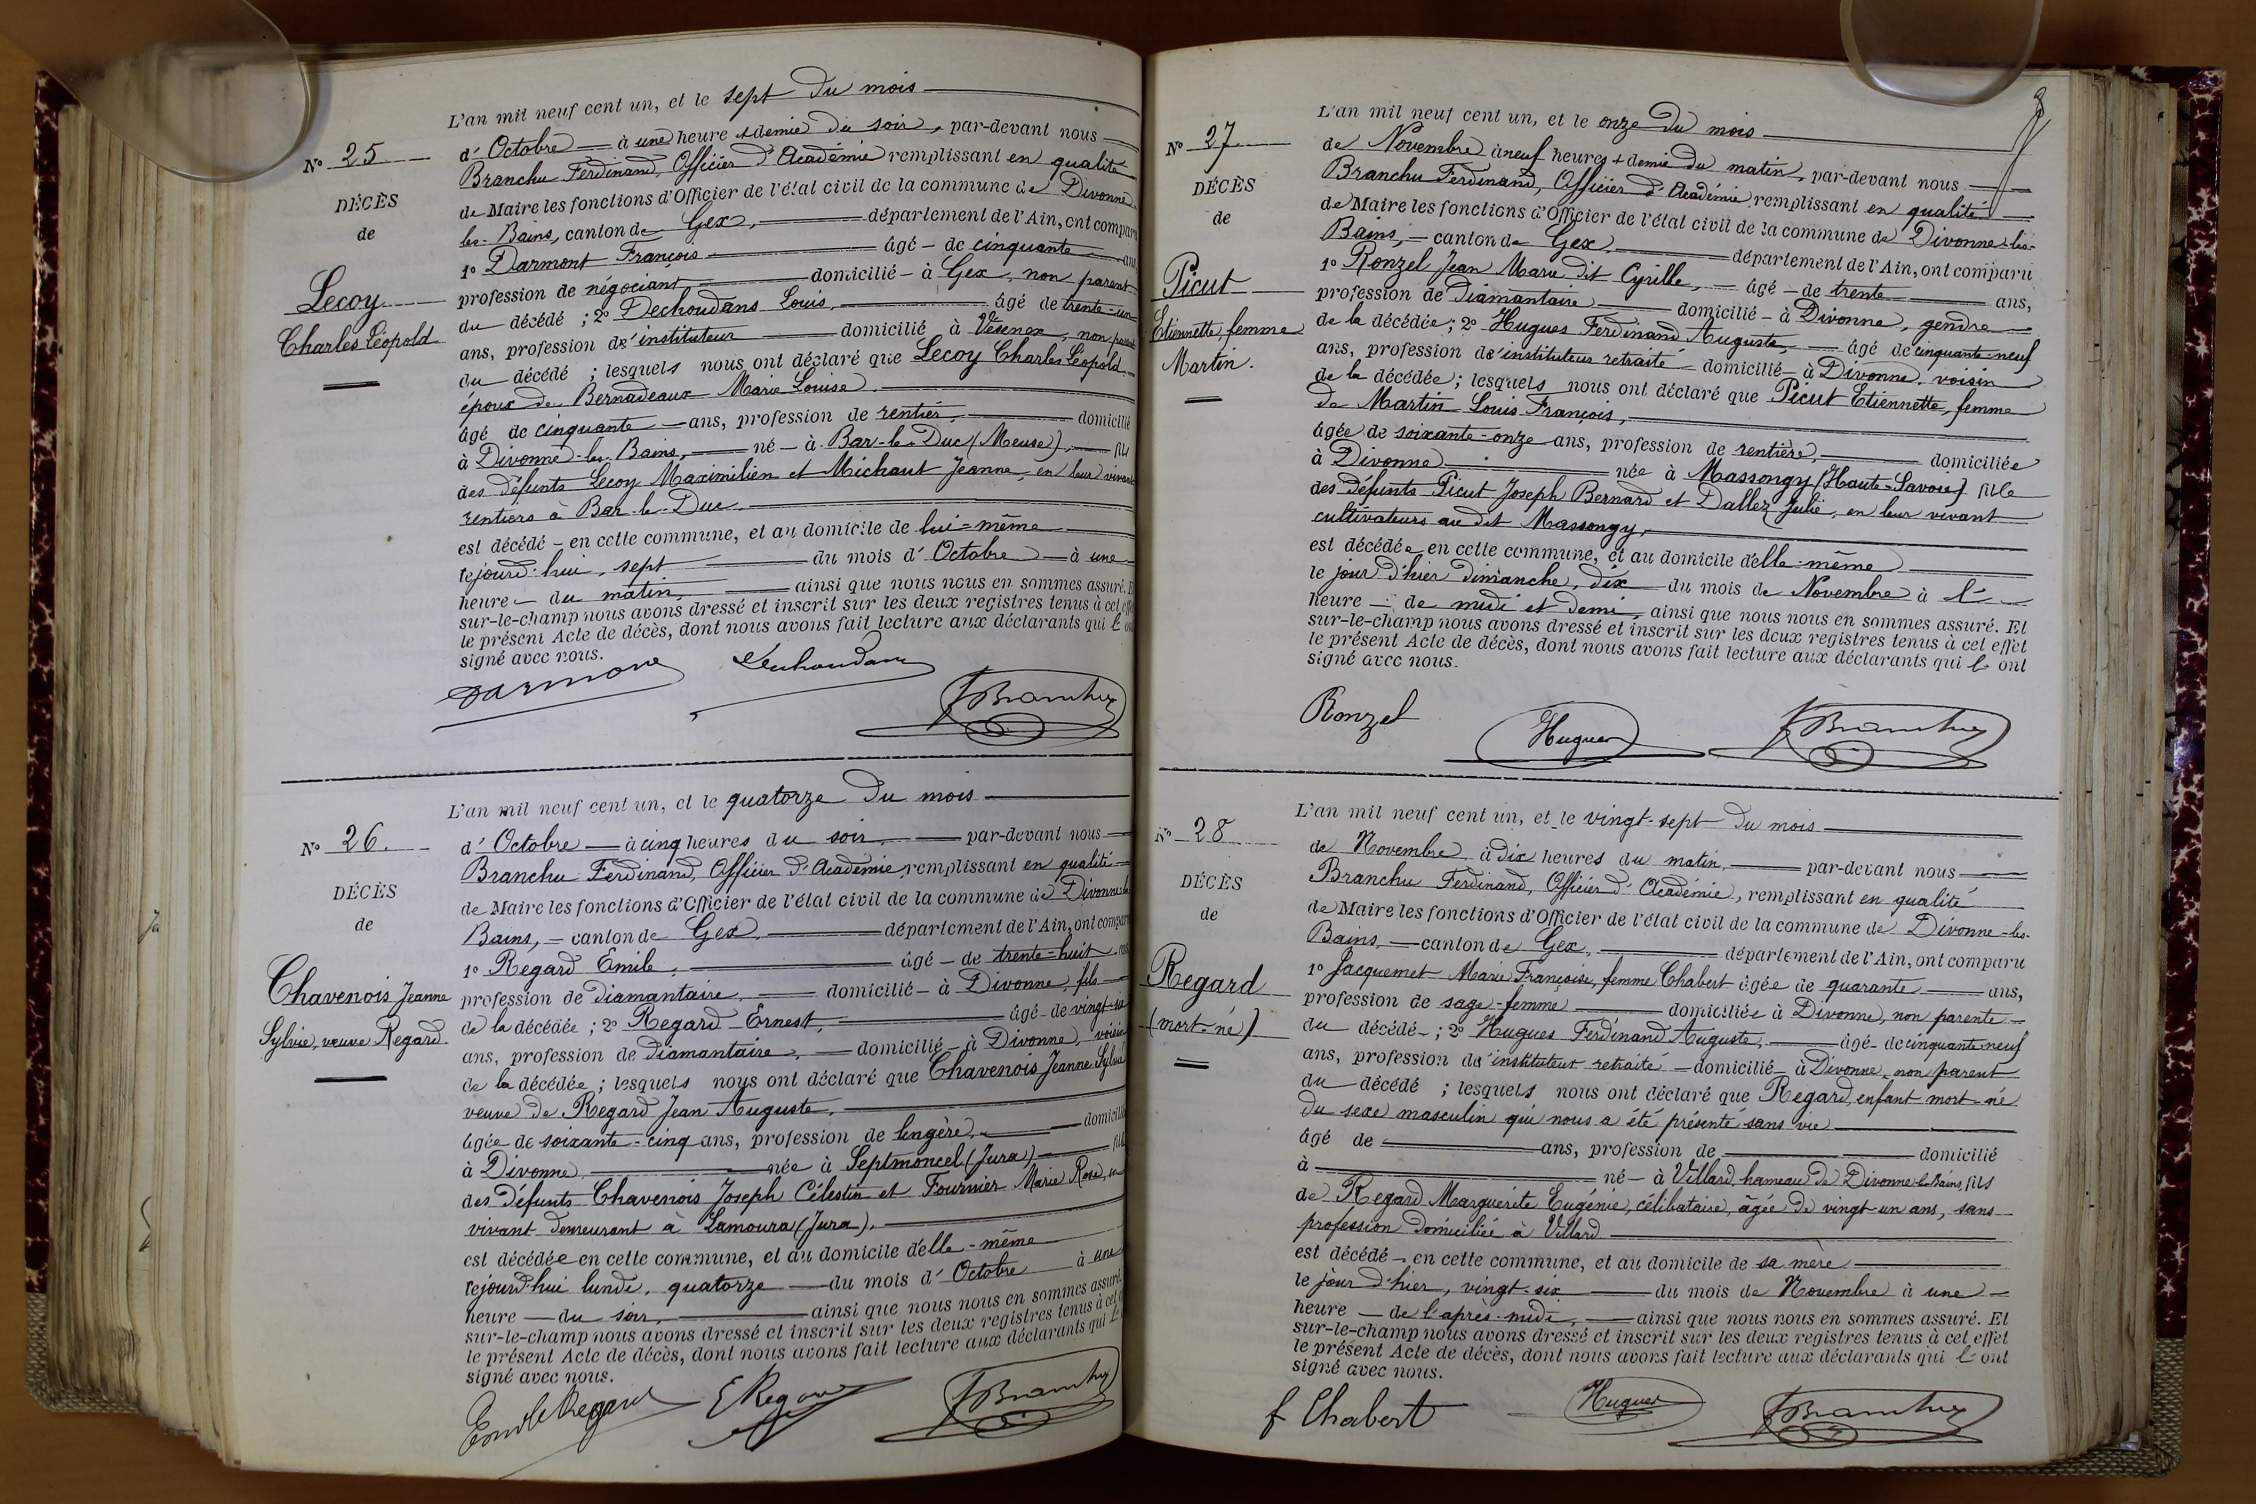 L'an mil neuf cent un, et le sept du mois
d'Octobre à une heure & demie du soir, par-devant nous
N° 25
Branchu Ferdinand, Officier d'Académie remplissant en qualité
de Maire les fonctions d'Officier de l'état civil de la commune de Divonne-
DÉCÈS
les-Bains, canton de Gex, département de l'Ain, ont comparu
de
1° Darmont François âgé de cinquante ans
profession de négociant domicilié à Gex, non parent
Lecoy
du décédé ; 2° Dechoudans Louis, âgé de trente-un
Charles Léopold
ans, profession d'instituteur domicilié à Vésenex, non parent
du décédé ; lesquels nous ont déclaré que Lecoy Charles Léopold
époux de Bernadeaux Marie Louise
âgé de cinquante ans, profession de rentier, domicilié
à Divonne-les-Bains, né à Bar-le-Duc (Meuse), fils
des défunts Lecoy Maximilien et Michaut Jeanne, en leur vivant
rentiers à Bar-le-Duc
est décédé en cette commune, et au domicile de lui-même
cejourd'hui, sept du mois d'Octobre à une
heure du matin, ainsi que nous nous en sommes assuré. Et
sur-le-champ nous avons dressé et inscrit sur les deux registres tenus à cet effet
le présent Acte de décès, dont nous avons fait lecture aux déclarants qui l'ont
signé avec nous.
Darmont Dechoudans FBranchu
L'an mil neuf cent un, et le quatorze du mois
N° 26.
d'Octobre à cinq heures du soir, par-devant nous
Branchu Ferdinand, Officier d'Académie, remplissant en qualité
DÉCÈS
de Maire les fonctions d'Officier de l'état civil de la commune de Divonne-les-
de
Bains, canton de Gex, département de l'Ain, ont comparu
1° Regard Emile, âgé de trente-huit ans
Chavenois Jeanne
profession de diamantaire, domicilié à Divonne, fils
Sylvie, veuve Regard.
de la décédée ; 2° Regard Ernest, âgé de
ans, profession de diamantaire, domicilié à Divonne, voisin
de la décédée ; lesquels nous ont déclaré que Chavenois Jeanne Sylvie
veuve de Regard Jean Auguste,
âgée de soixante-cinq ans, profession de lingère, domiciliée
à Divonne, née à Septmoncel (Jura) fille
des défunts Chavenois Joseph Célestin et Fournier Marie Rose, en
vivant demeurant à Lamoura (Jura),
est décédée en cette commune, et au domicile d'elle-même
cejourd'hui lundi, quatorze du mois d'Octobre à une
heure du soir, ainsi que nous nous en sommes assuré.
sur-le-champ nous avons dressé et inscrit sur les deux registres tenus à cet
le présent Acte de décès, dont nous avons fait lecture aux déclarants qui l'
signé avec nous.
Emile Regard E Regard FBranchu
L'an mil neuf cent un, et le onze du mois
N° 27
de Novembre à neuf heures & demie du matin, par-devant nous
Branchu Ferdinand, Officier d'Académie remplissant en qualité
DÉCÈS
de Maire les fonctions d'Officier de l'état civil de la commune de Divonne-les-
de
Bains, canton de Gex, département de l'Ain, ont comparu
1° Ronzel Jean Marie dit Cyrille, âgé de trente ans,
Picut
profession de diamantaire domicilié à Divonne, gendre
Etiennette, femme
de la décédée ; 2° Hugues Ferdinand Auguste, âgé de cinquante-neuf
Martin.
ans, profession d'instituteur retraité domicilié à Divonne, voisin
de la décédée ; lesquels nous ont déclaré que Picut Etiennette, femme
de Martin Louis François,
âgée de soixante-onze ans, profession de rentière, domiciliée
à Divonne née à Massongy (Haute-Savoie) fille
des défunts Picut Joseph Bernard et Dallez Julie, en leur vivant
cultivateurs au dit Massongy,
est décédée en cette commune, et au domicile d'elle-même
le jour d'hier dimanche, dix du mois de Novembre à l'
heure de midi et demi, ainsi que nous nous en sommes assuré. Et
sur-le-champ nous avons dressé et inscrit sur les deux registres tenus à cet effet
le présent Acte de décès, dont nous avons fait lecture aux déclarants qui l'ont
signé avec nous.
Ronzel Hugues FBranchu
L'an mil neuf cent un, et le vingt-sept du mois
N° 28
de Novembre à dix heures du matin, par-devant nous
Branchu Ferdinand, Officier d'Académie, remplissant en qualité
DÉCÈS
de Maire les fonctions d'Officier de l'état civil de la commune de Divonne-les-
de
Bains, canton de Gex, département de l'Ain, ont comparu
1° Jacquemet Marie Françoise, femme Chabert âgée de quarante ans,
Regard
profession de sage-femme domiciliée à Divonne, non parente
(mort-né)
du décédé ; 2° Hugues Ferdinand Auguste, âgé de cinquante-neuf
ans, profession d'instituteur retraité domicilié à Divonne, non parent
du décédé ; lesquels nous ont déclaré que Regard, enfant mort-né
du sexe masculin qui nous a été présenté sans vie
âgé de ans, profession de domicilié
à né à Villard, hameau de Divonne-les-Bains, fils
de Regard Marguerite Eugénie, célibataire, âgée de vingt-un ans, sans
profession domiciliée à Villard
est décédé en cette commune, et au domicile de sa mère
le jour d'hier, vingt-six du mois de Novembre à une
heure de l'après-midi, ainsi que nous nous en sommes assuré. Et
sur-le-champ nous avons dressé et inscrit sur les deux registres tenus à cet effet
le présent Acte de décès, dont nous avons fait lecture aux déclarants qui l'ont
signé avec nous.
f Chabert Hugues FBranchu